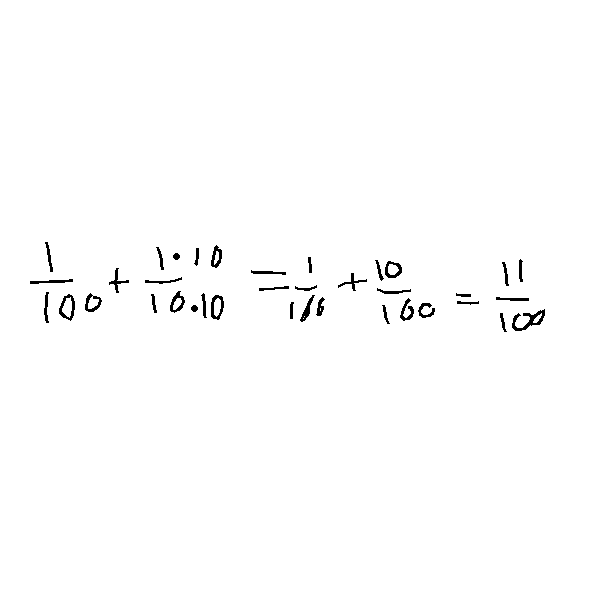 1/100 + 1·10/10·10 = 1/100 + 10/100 = 11/100